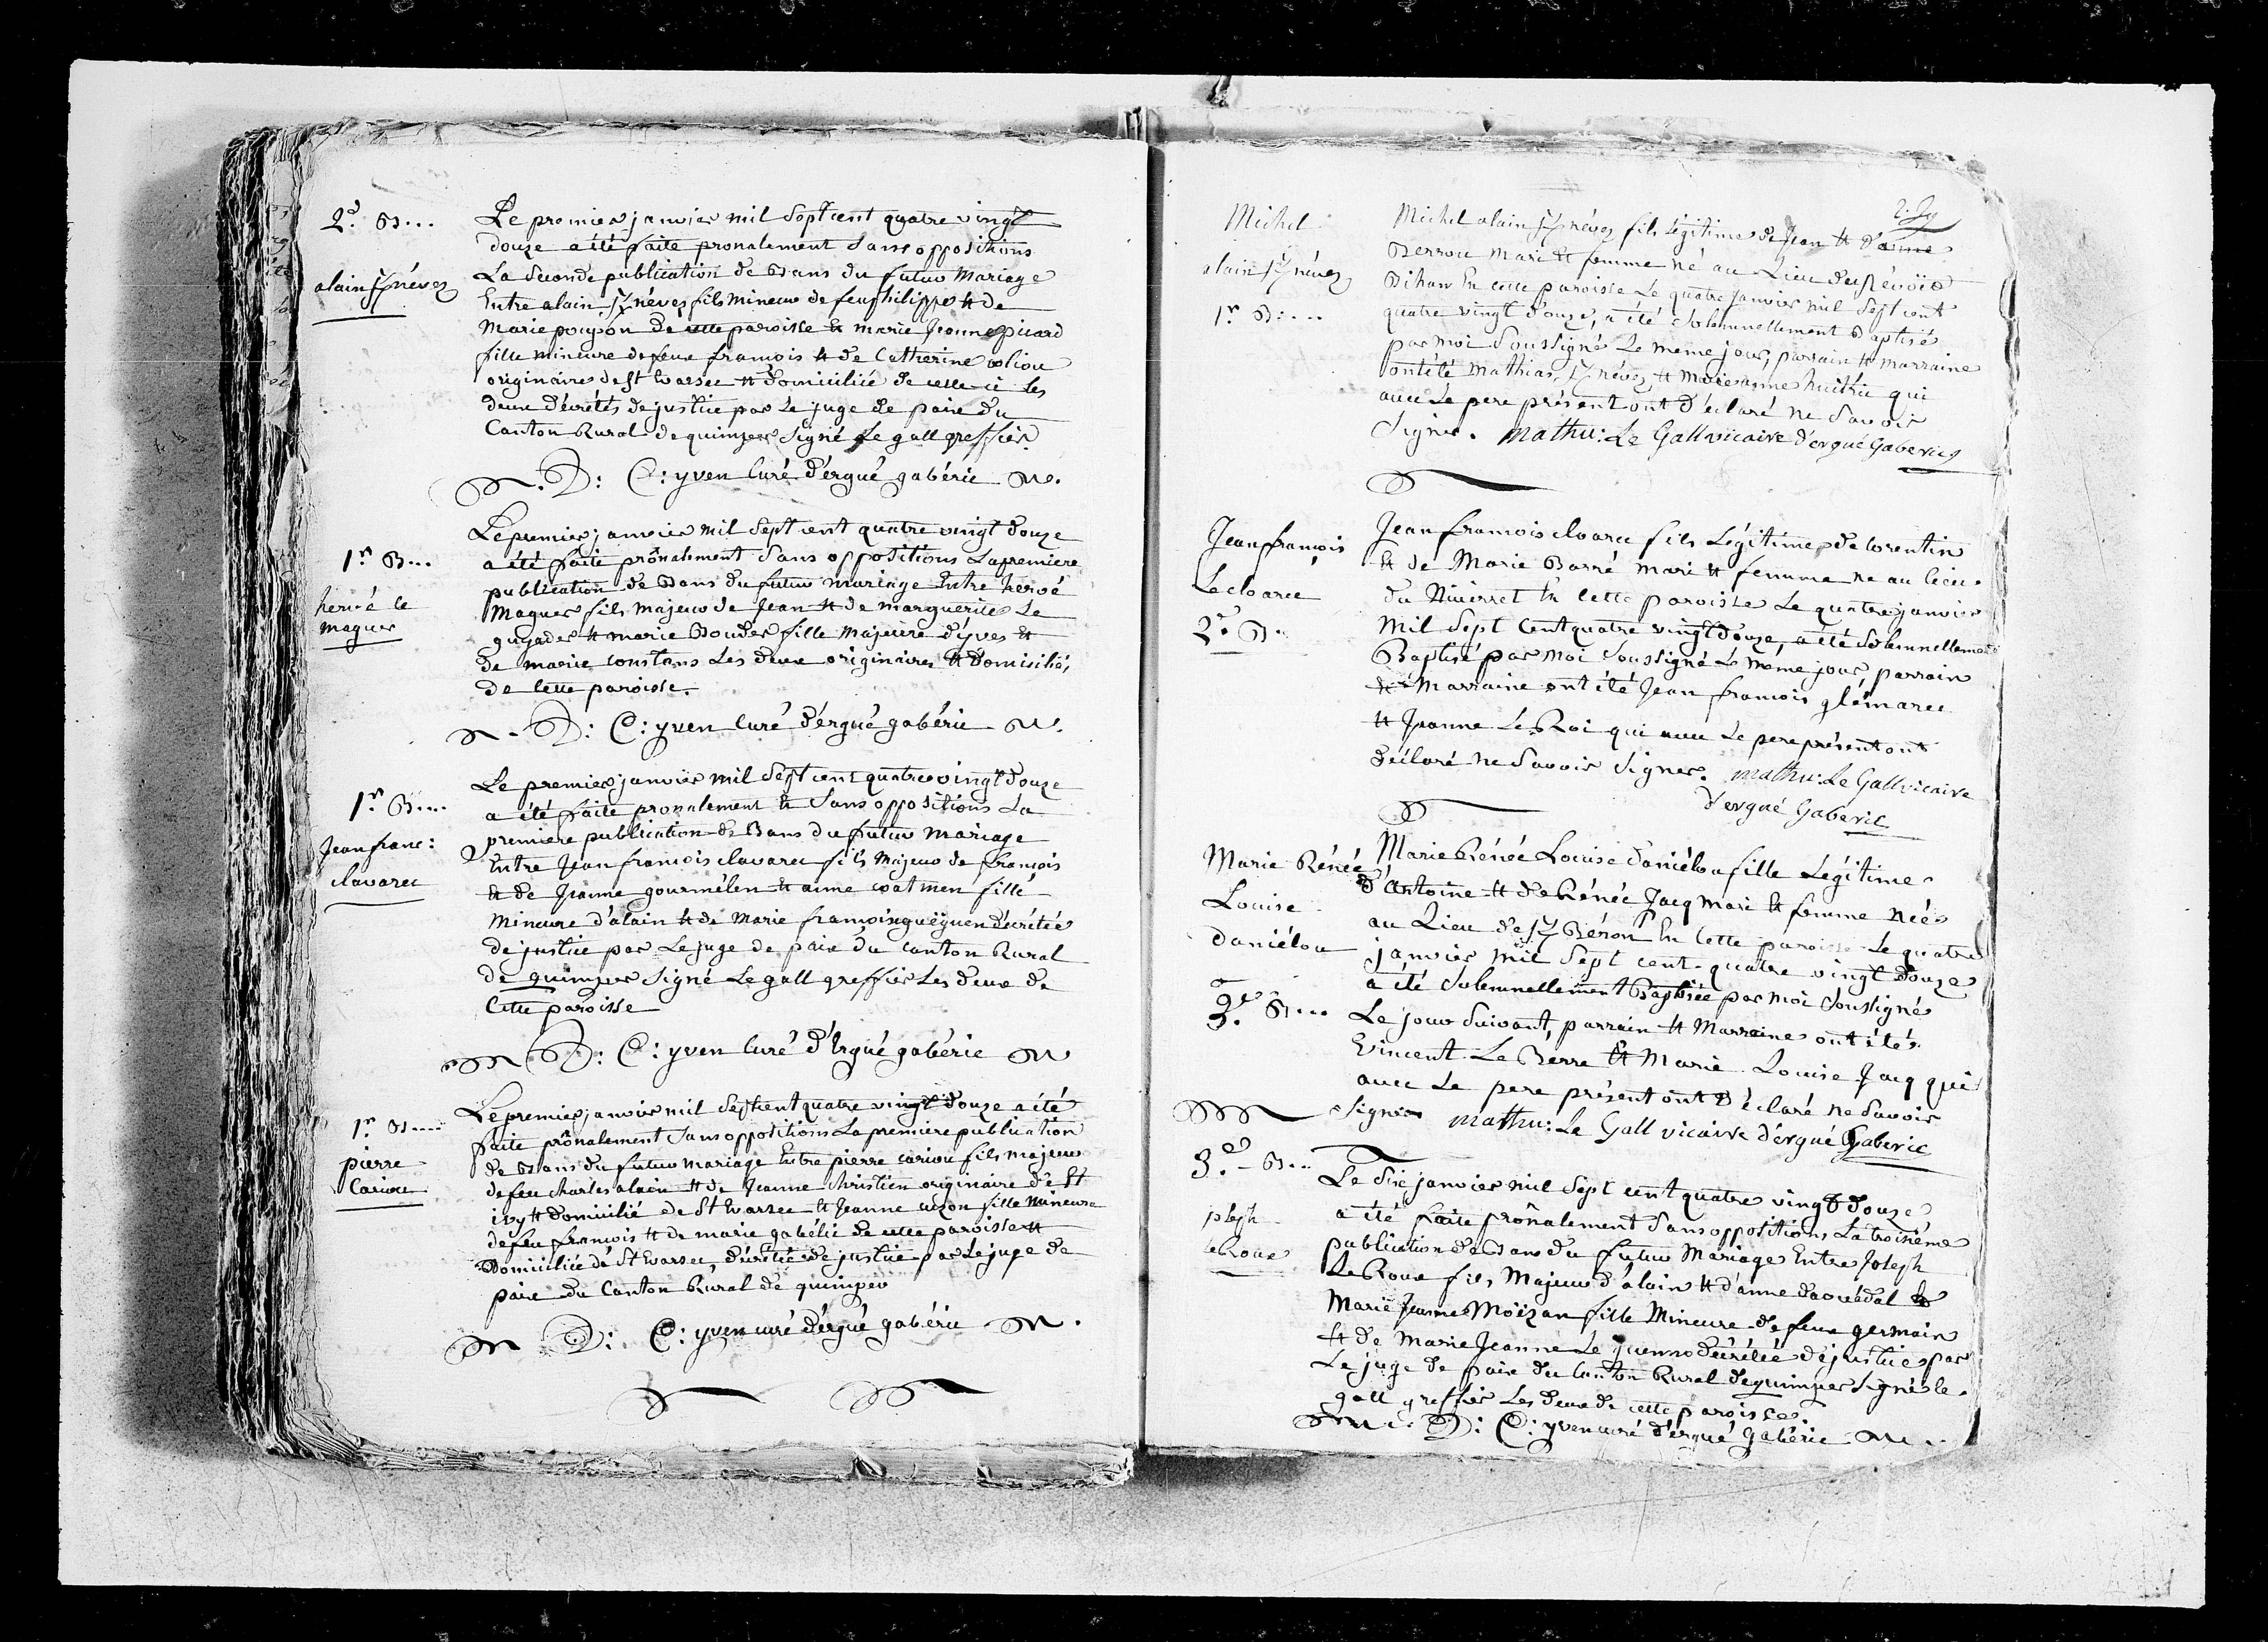 2.d B...
alain K/névez
Le premier janvier mil Sept cent quatre vingt
douze a été faite pronalement Sans oppositions
La Seconde publication de Bans du futur Mariage
Entre alain K/névez fils mineur de feu philippe et de
Marie poupon de cette paroisse et marie Jeanne picard
fille mineure de feux francois et de Catherine coliou
originaire de St Evarzec et domiciliée de celle-ci Les
deux décrétés de justice par Le juge de paix du
Canton Rural de quimper Signé Le gall greffier
D: C: yven Curé d'ergué gabéric
1.r B...
hervé le
maguer
Le premier janvier mil Sept cent quatre vingt douze
a été faite prônalement Sans oppositions La premiere
publication de Bans du futur mariage Entre hervé
Maguer fils majeur de Jean et de marguerite Le
guyader et marie Bouder fille Majeure d'yves et
de marie constans Les deux originaires et Domiciliés
de Cette paroisse.
D: C: yven Curé d'érgué gabéric
1.r B....
Jean franc:
clavarec
Le premier janvier mil Sept cent quatre vingt douze
a été faite pronalement et Sans oppositions La
premiere publication de Bans du futur Mariage
Entre Jean francois clavarec fils Majeur de François
et de Jeanne gourmélen et anne coatmen fille
Mineure d'alain et de Marie francoise guéguen décrétée
de justice par Le juge de paix du Canton Rural
de quimper Signé Le gall greffier Les deux de
Cette paroisse
D: C: yven Curé d'Ergué gabéric
1.r B....
pierre
Cariou
Le premier janvier mil Sept cent quatre vingt douze a été
faite prônalement Sans oppositions La premiere publication
de Bans du futur mariage Entre pierre cariou fils majeur
de feu charles alain et de Jeanne christien originaire de St
ivy et domicilié de St Evarzec et Jeanne cuzon fille Mineure
de feu françois et de marie gabélic de cette paroisse et
Domiciliée de St Evarzec, décrétée de justice par Le juge de
paix du Canton Rural de quimper
D: C: yven curé d'érgué gabéric
Michel
alain K/névez
1.r B....
Michel alain K/névez fils Légitime de Jean et d'anne
Berrou Mari et femme né au Lieu du
Bihan En cette paroisse Le quatre Janvier mil Sept cent
quatre vingt douze, a été Solemnellement Baptisé
par moi Soussigné Le meme jour, parrain et marraine
ont été Mathias K/névez et Marie anne huitric qui
avec Le pere présent ont déclaré ne Savoir
Signer. Mathu: Le Gall vicaire d'ergué Gaberic
Jean françois
Le cloarec
2.e B.
Jean francois cloarec fils Légitime de Corentin
et de Marie Barré Mari et femme né au Lieu
du En Cette paroisse Le quatre janvier
Mil Sept Cent quatre vingt douze, a été Solemnellement
Baptisé par Moi Soussigné Le meme jour, parrain
et Marraine ont été Jean francois glémarec
et Jeanne Le Roi qui avec Le pere présent ont
déclaré ne Savoir Signer. Mathu: Le Gall vicaire
d'ergué Gaberic
Marie Rénée
Louise
daniélou
3.e B...
Marie Rénée Louise daniélou fille Légitime
d'antoine et de Rénée Jacq Mari et femme née
au Lieu de K/ En Cette paroisse Le quatre
janvier Mil Sept cent quatre vingt douze
a été Solemnellement Baptisée par moi Soussigné
Le jour Suivant, parrain et Marraine ont été
Vincent Le Berre et Marie Louise Jacq qui
avec Le pere présent ont déclaré ne Savoir
Signer Mathu: Le Gall vicaire d'ergué Gaberic
3.e B...
joseph
le Roux
Le Six janvier mil Sept cent quatre vingt douze
a été faite prônalement Sans oppositions La troisième
publication de Bans du futur Mariage Entre Joseph
Le Roux fils Majeur d'alain et d'anne et
Marie Jeanne Moizan fille Mineure de feux germain
et de Marie Jeanne Le décrétée de justice par
Le juge de paix du Canton Rural de quimper Signé Le
gall greffier Les deux de cette paroisse.
D: C: yven curé d'érgué Gabéric